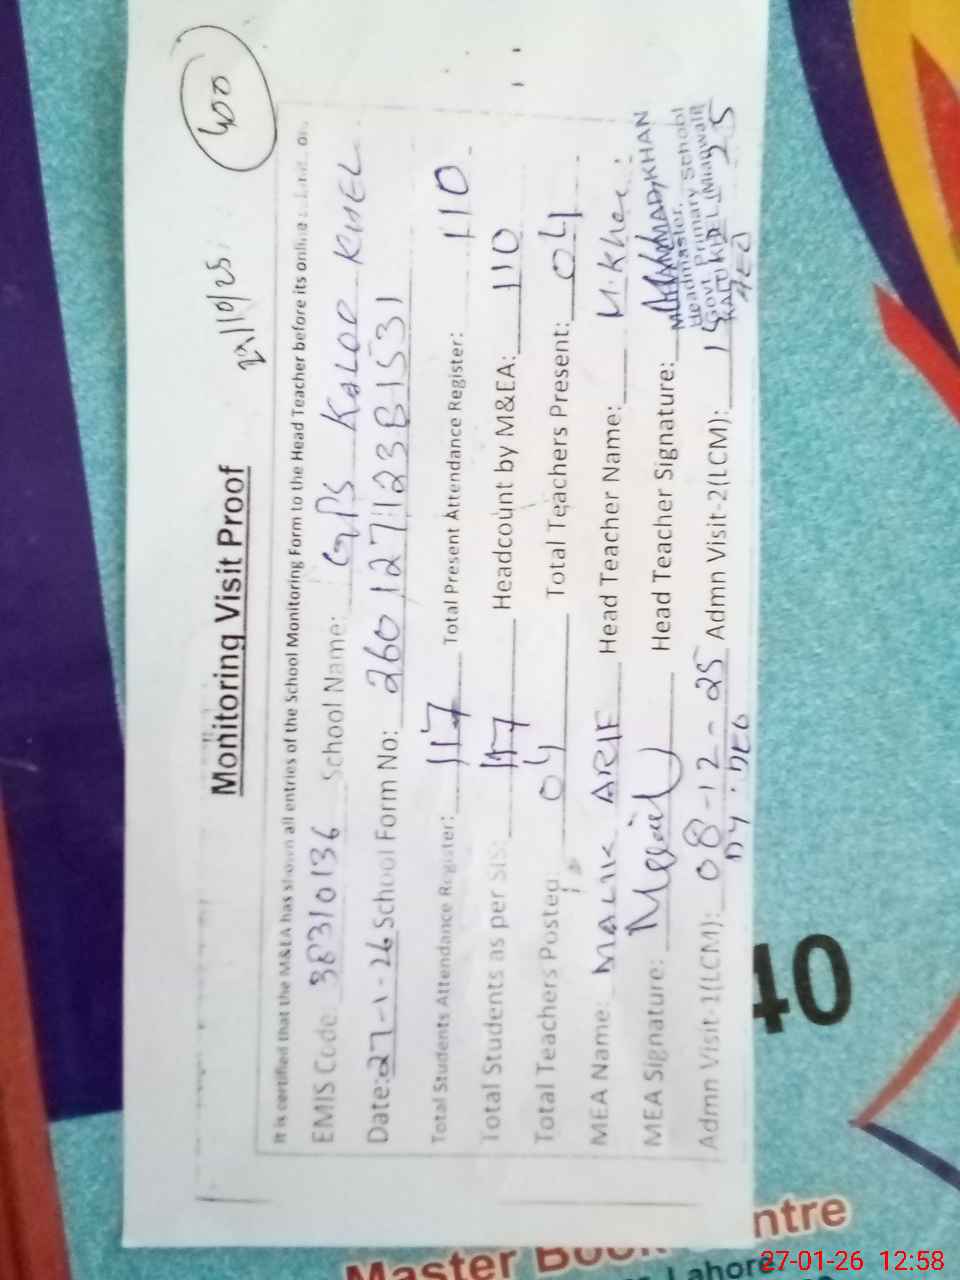 400
29/10/25
Monitoring Visit Proof
It is certified that the M&EA has shown all entries of the School Monitoring Form to the Head Teacher before its online
EMIS Code: 38310136 School Name: GPS KALOO KHEL
Date: 27-1-26 School Form No: 260127123B1531
Total Students Attendance Register: 117 Total Present Attendance Register: 110
Total Students as per SIS: 117 Headcount by M&EA: 110
Total Teachers Posted: 04 Total Teachers Present: 04
MEA Name: MALIK ARIF Head Teacher Name: M. Khan
MEA Signature: Head Teacher Signature:
MUHAMMAD KHAN
Headmaster.
Govt. Primary School
KALU KHEL (Mianwali)
Admn Visit-1(LCM): 08-12-25 Admn Visit-2(LCM): 15 25
DY. DEO AEO
40
Master Book Centre
Lahore
27-01-26 12:58